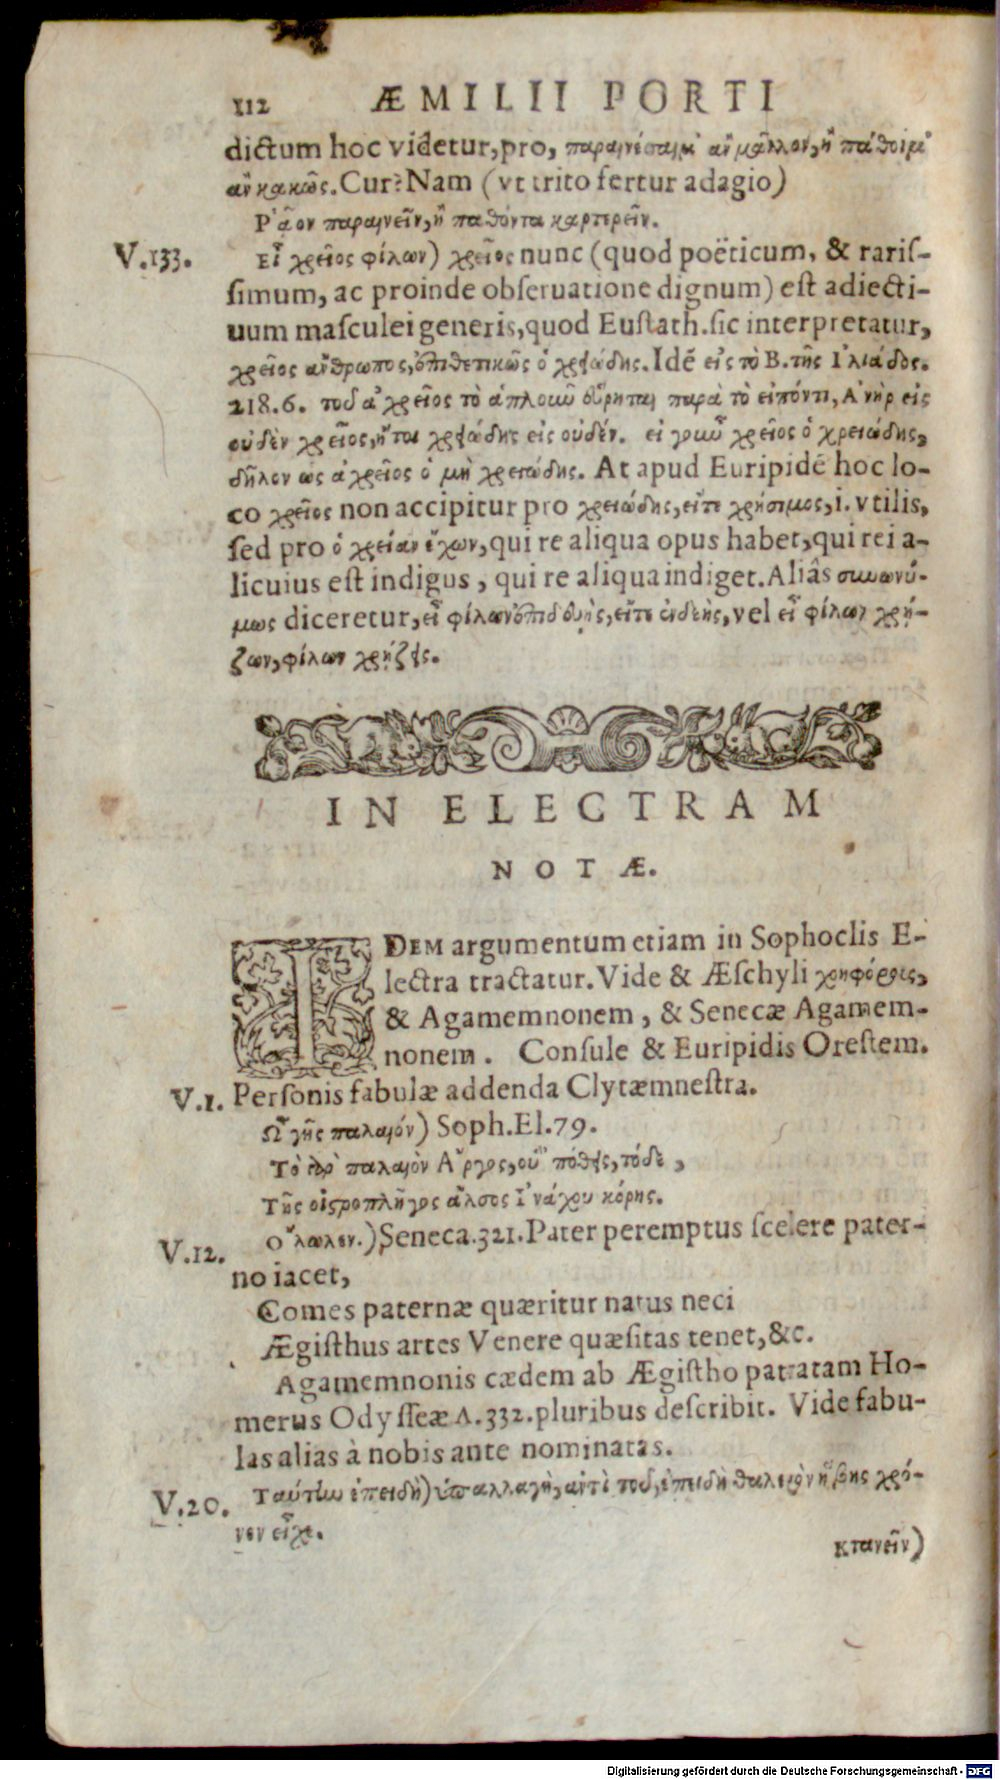 112 ÆMILII PORTI
dictum hoc videtur, pro, παραινέσαιμι ἂν μᾶλλον, ἢ πάθοιμι
ἂν κακῶς. Cur? Nam (vt trito fertur adagio)
Ρᾷον παραινεῖν, ἢ παθόντα καρτερεῖν.
V.133. Εἶ χρεῖος φίλων) χρεῖος nunc (quod poëticum, & raris-
simum, ac proinde obseruatione dignum) est adiecti-
uum masculei generis, quod Eustath. sic interpretatur,
χρεῖος ἄνθρωπος, ἐπιθετικῶς ὁ χρειώδης. Idē εἰς τὸ Β. τῆς Ἰλιάδος.
218.6. τοῦ ἀχρεῖος τὸ ἁπλοῦν εὕρηται παρὰ τὸ εἰπόντι, Ἀνὴρ εἰς
οὐδὲν χρεῖος, ἤτοι χρειώδης εἰς οὐδέν. εἰ γοῦν χρεῖος ὁ χρειώδης,
δῆλον ὡς ἀχρεῖος ὁ μὴ χρειώδης. At apud Euripidē hoc lo-
co χρεῖος non accipitur pro χρειώδης, εἴτε χρήσιμος, i. vtilis,
sed pro ὁ χρείαν ἔχων, qui re aliqua opus habet, qui rei a-
licuius est indigus, qui re aliqua indiget. Aliâs συνωνύ-
μως diceretur, εἶ φίλων ἐπιδεὴς, εἴτε ἐνδεὴς, vel εἶ φίλων χρῄ-
ζων, φίλων χρῄζεις.
IN ELECTRAM
NOTÆ.
IDEM argumentum etiam in Sophoclis E-
lectra tractatur. Vide & Æschyli χοηφόρους,
& Agamemnonem, & Senecæ Agamem-
nonem. Consule & Euripidis Orestem.
V.1. Personis fabulæ addenda Clytæmnestra.
Ὦ γῆς παλαιόν) Soph. El. 79.
Τὸ γὰρ παλαιὸν Ἄργος, οὗ 'πόθεις, τόδε,
Τῆς οἰστροπλῆγος ἄλσος Ἰνάχου κόρης.
V.12. Ὄλωλεν.) Seneca. 321. Pater peremptus scelere pater-
no iacet,
Comes paternæ quæritur natus neci
Ægisthus artes Venere quæsitas tenet, &c.
Agamemnonis cædem ab Ægistho patratam Ho-
merus Odysseæ Λ. 332. pluribus describit. Vide fabu-
las alias à nobis ante nominatas.
V.20. Ταύτην ἐπειδὴ) ὑπαλλαγὴ, ἀντὶ τοῦ, ἐπειδὴ θαλερὸν ἥβης χρό-
νον εἶχε.
κτανεῖν)
Digitalisierung gefördert durch die Deutsche Forschungsgemeinschaft - DFG